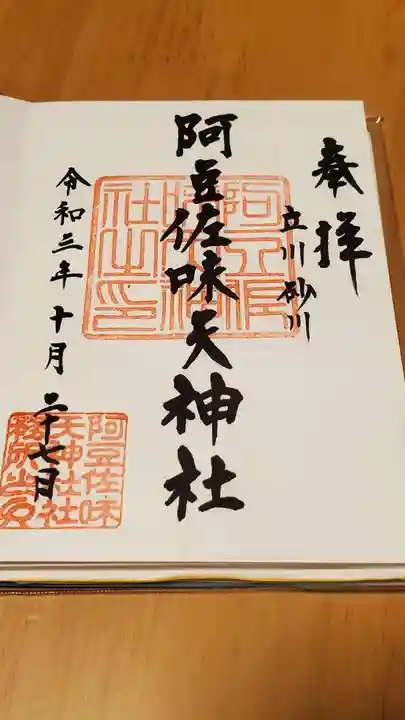 奉拝
立川砂川
阿豆佐味天神社
令和三年十月二十七日
阿豆佐味
天神社社
務所之印